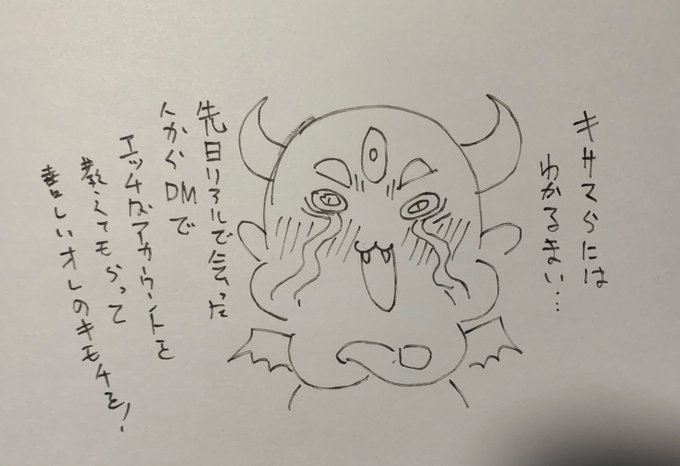 キサマらには
わかるまい…
先日リアルで会った
人からDMで
エッチなアカウントを
教えてもらって
喜しいオレのキモチを!